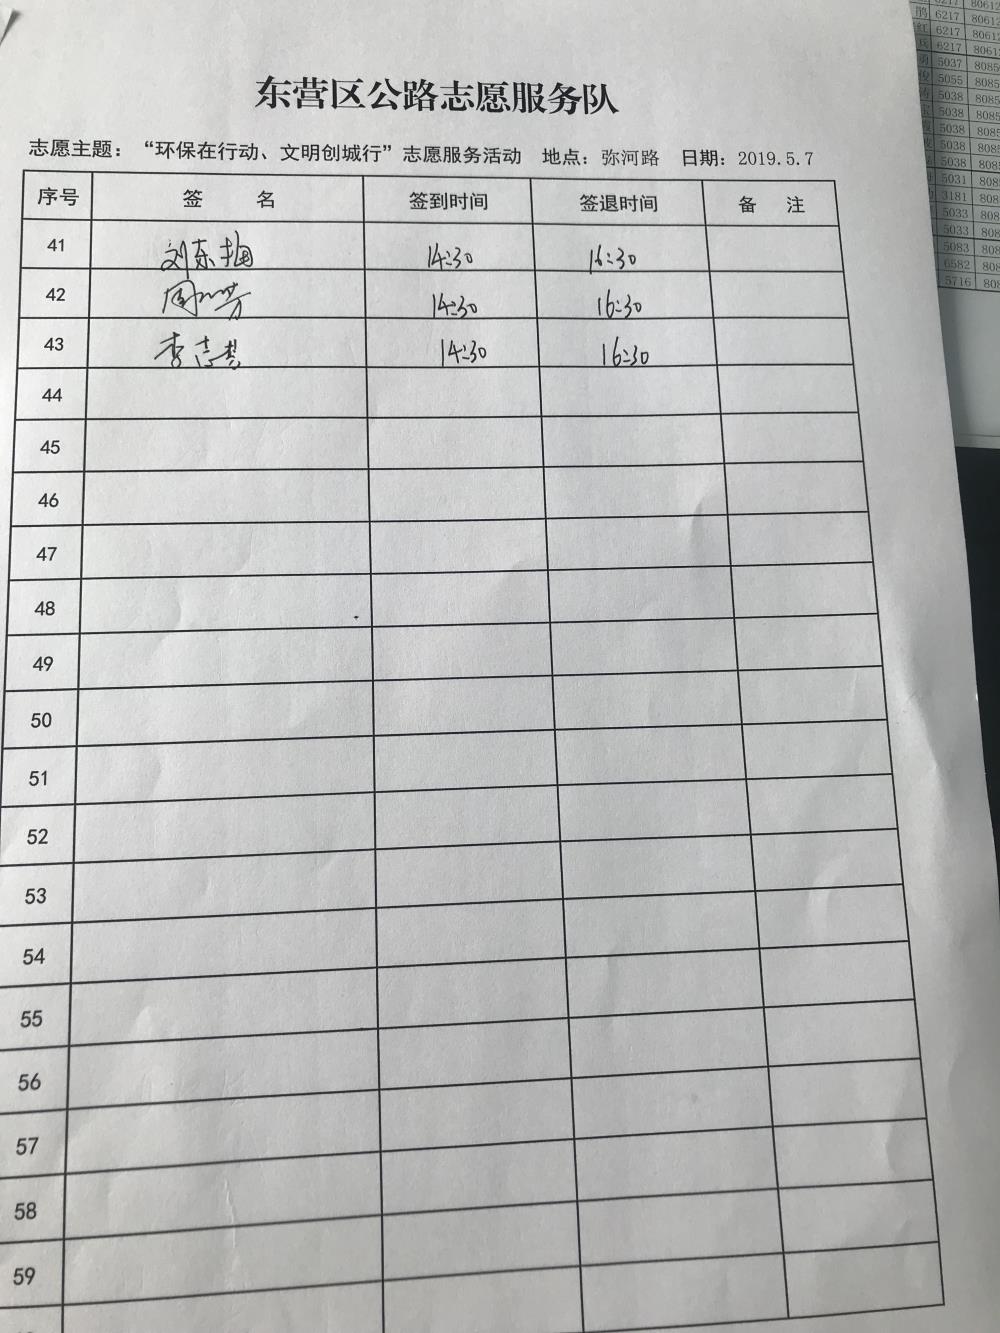 东营区公路志愿服务队
志愿主题：“环保在行动、文明创城行”志愿服务活动 地点：弥河路 日期：2019.5.7
序号 签 名 签到时间 签退时间 备 注
41 刘东 14:30 16:30
42 周 芳 14:30 16:30
43 李志 14:30 16:30
44
45
46
47
48
49
50
51
52
53
54
55
56
57
58
59
6217 80612
6217 80612
6217 80612
5037 8085
5055 8085
5038 8085
5038 8085
5038 8085
5038 8085
5031 808
3181 808
5033 808
5033 808
5083 808
6582 808
5716 808